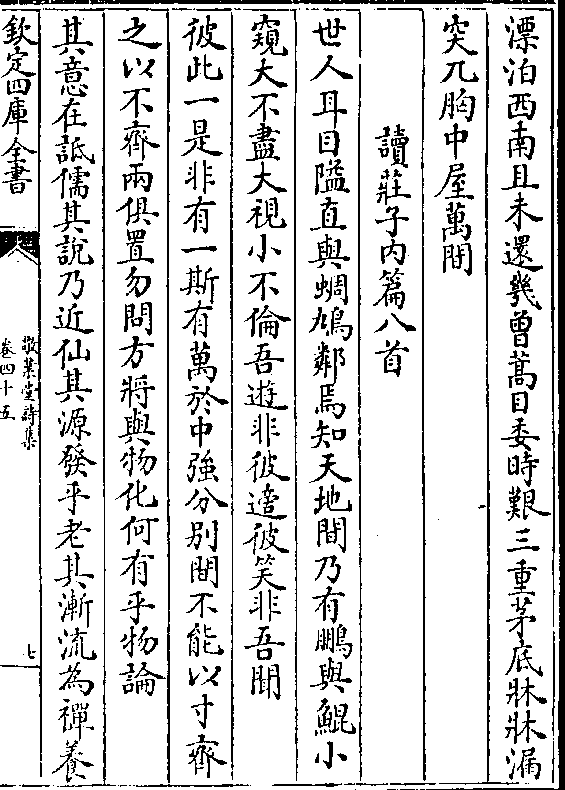 漂泊西南且未還幾曾蒿目委時艱三重茅底牀牀漏
突兀胸中屋萬間
讀莊子內篇八首
世人耳目隘直與蜩鳩鄰焉知天地間乃有鵬與鯤小
窺大不盡大視小不倫吾遊非彼適彼笑非吾聞
彼此一是非有一斯有萬於中強分別間不能以寸齊
之以不齊兩俱置勿問方將與物化何有乎物論
其意在詆儒其說乃近仙其源發乎老其漸流為禪養
欽定四庫全書
敬業堂詩集
卷四十五
七